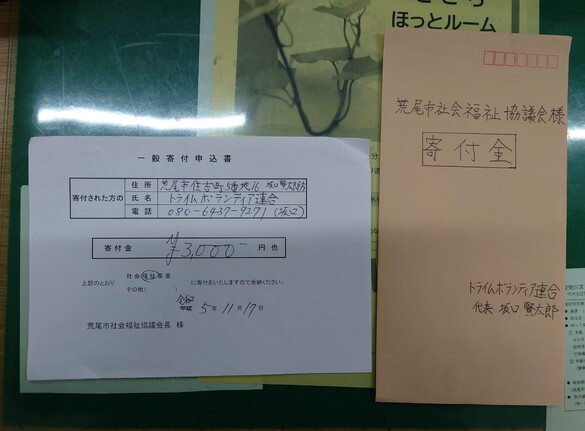 ほっとルーム
一般寄付申込書
寄付された方の
住所 荒尾市住吉町5番地16 坂口賢太郎方
氏名 トライムボランティア連合
電話 080-6437-9271 (坂口)
寄付金 ¥3,000- 円也
上記のとおり
社会福祉事業
その他( )
に寄付をいたしますので受納ください。
令和
平成 5年 11月 17日
荒尾市社会福祉協議会長 様
荒尾市社会福祉協議会様
寄付金
トライムボランティア連合
代表 坂口 賢太郎